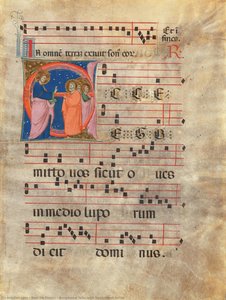 Et i
fines.
omnē terrā exiuit son cor R
ECCE
EGO
mitto uos sicut o ues
inmedio lupo rum
dicit domi nus.